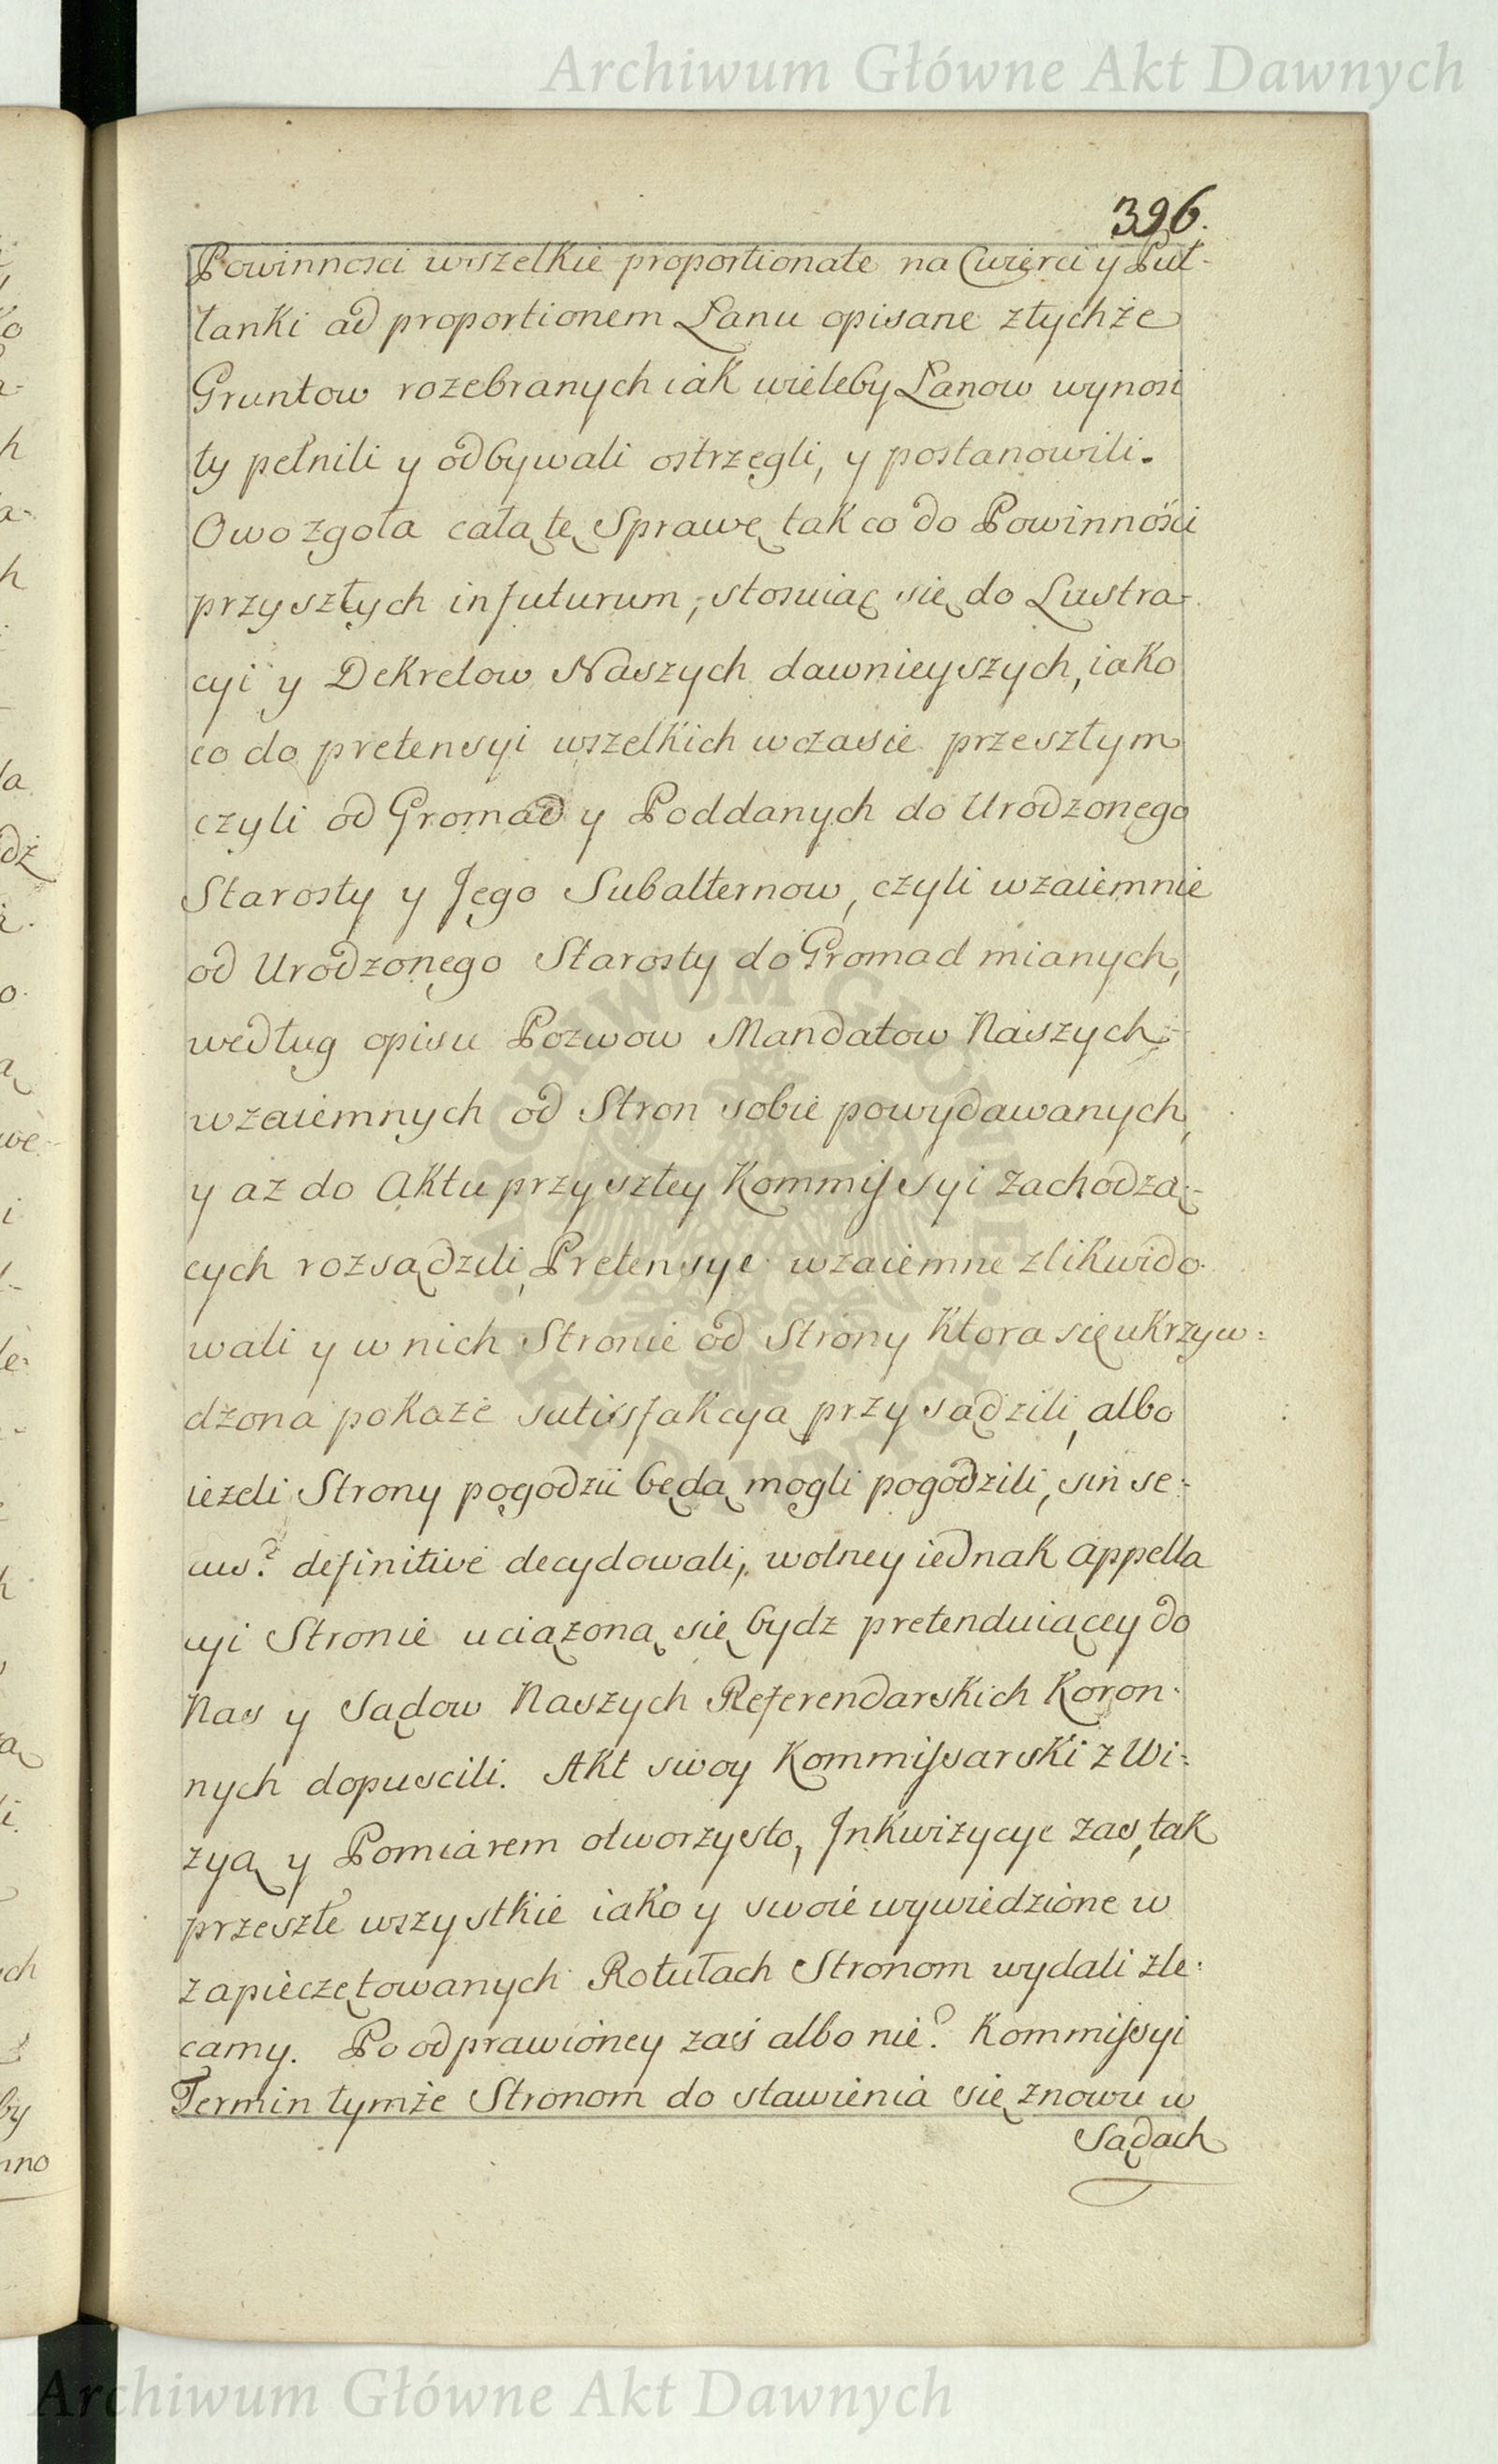 Archiwum Główne Akt Dawnych
396.
Powinnosci wszelkie proportionate na Cwierci y Puł-
łanki ad proportionem Łanu opisane z tychże
Gruntow rozebranych iak wieleby Łanow wynosi
ły pełnili y odbywali ostrzegli, y postanowili.
Owo zgoła całą tę Sprawę tak co do Powinności
przyszłych in futurum, stosuiąc się do Lustra-
cyi y Dekretow Naszych dawnieyszych, iako
co do pretensyi wszelkich w czasie przeszłym
czyli od Gromad y Poddanych do Urodzonego
Starosty y Jego Subalternow, czyli wzaiemnie
od Urodzonego Starosty do Gromad mianych,
według opisu Pozwow Mandatow Naszych
wzaiemnych od Stron sobie powydawanych,
y aż do Aktu przyszłey Kommissyi zachodzą-
cych rozsądzili, Pretensye wzaiemne zlikwido-
wali y w nich Stronie od Strony ktora się ukrzyw-
dzona pokaże satisfakcyą przysądzili, albo
ieżeli Strony pogodzić będą mogli pogodzili, sin se-
cus? definitive decydowali, wolney iednak appella
cyi Stronie uciążoną się bydz pretenduiącey do
Nas y Sądow Naszych Referendarskich Koron-
nych dopuscili. Akt swoy Kommissarski z Wi-
zyą y Pomiarem otworzysto, Inkwizycye zas, tak
przeszłe wszystkie iako y swoie wywiedzione w
zapieczętowanych Rotułach Stronom wydali zle-
camy. Po odprawioney zaś albo nie? Kommissyi
Termin tymże Stronom do stawienia się znowu w
Sądach
Archiwum Główne Akt Dawnych